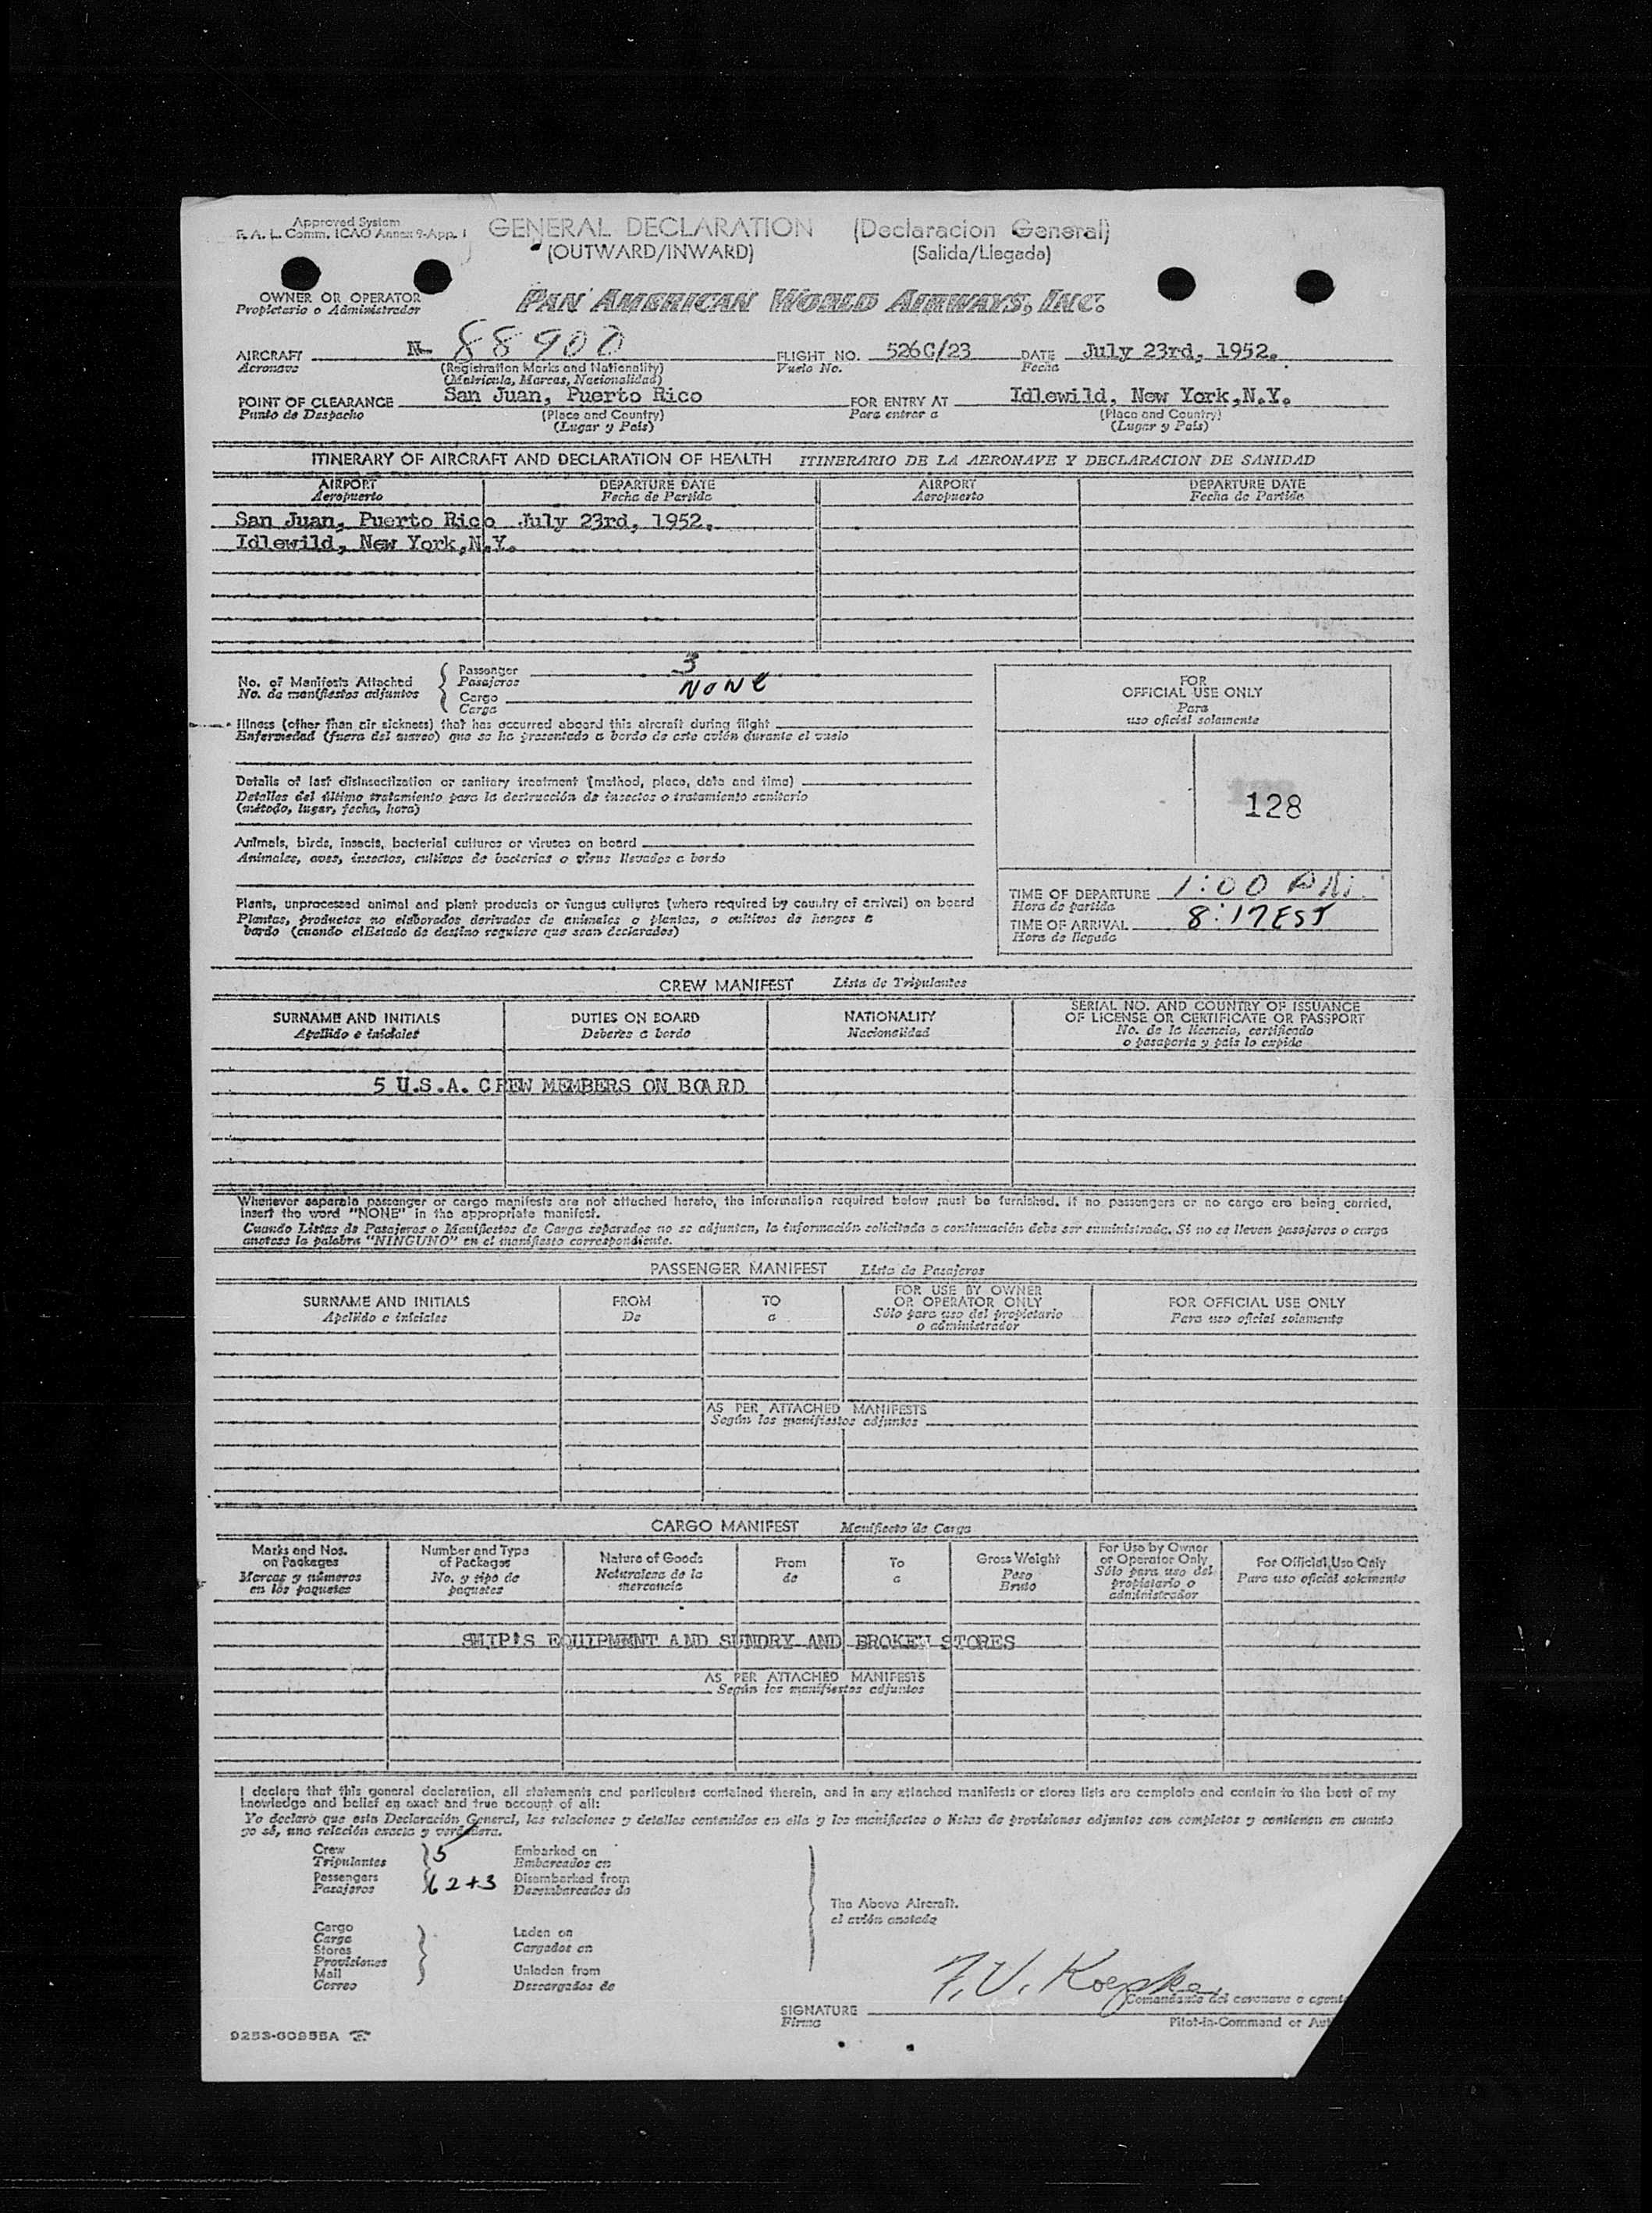 Approved System
F. A. L. Comm. ICAO Annex 9-App. 1
GENERAL DECLARATION (Declaracion General)
(OUTWARD/INWARD) (Salida/Llegada)
OWNER OR OPERATOR
Propietario o Administrador
PAN AMERICAN WORLD AIRWAYS, INC.
AIRCRAFT N- 88900 FLIGHT NO. 526C/23 DATE July 23rd, 1952.
Aeronave (Registration Marks and Nationality) Vuelo No. Fecha
(Matricula, Marcas, Nacionalidad)
POINT OF CLEARANCE San Juan, Puerto Rico FOR ENTRY AT Idlewild, New York,N.Y.
Punto de Despacho (Place and Country) Para entrar a (Place and Country)
(Lugar y País) (Lugar y País)
ITINERARY OF AIRCRAFT AND DECLARATION OF HEALTH ITINERARIO DE LA AERONAVE Y DECLARACION DE SANIDAD
AIRPORT DEPARTURE DATE AIRPORT DEPARTURE DATE
Aeropuerto Fecha de Partida Aeropuerto Fecha de Partida
San Juan, Puerto Rico July 23rd, 1952.
Idlewild, New York,N.Y.
No. of Manifests Attached
No. de manifiestos adjuntos
Passenger 3
Pasajeros
Cargo NONE
Carga
Illness (other than air sickness) that has occurred aboard this aircraft during flight
Enfermedad (fuera del mareo) que se ha presentado a bordo de este avión durante el vuelo
Details of last disinsectization or sanitary treatment (method, place, date and time)
Detalles del último tratamiento para la destrucción de insectos o tratamiento sanitario
(método, lugar, fecha, hora)
Animals, birds, insects, bacterial cultures or viruses on board
Animales, aves, insectos, cultivos de bacterias o virus llevados a bordo
Plants, unprocessed animal and plant products or fungus cultures (where required by country of arrival) on board
Plantas, productos no elaborados derivados de animales o plantas, o cultivos de hongos a
bordo (cuando el Estado de destino requiere que sean declarados)
FOR
OFFICIAL USE ONLY
Para
uso oficial solamente
128
TIME OF DEPARTURE 1:00 P.M.
Hora de partida
TIME OF ARRIVAL 8:17 EST
Hora de llegada
CREW MANIFEST Lista de Tripulantes
SURNAME AND INITIALS DUTIES ON BOARD NATIONALITY SERIAL NO. AND COUNTRY OF ISSUANCE
OF LICENSE OR CERTIFICATE OR PASSPORT
Apellido e iniciales Deberes a bordo Nacionalidad No. de la licencia, certificado
o pasaporte y país lo expide
5 U.S.A. CREW MEMBERS ON BOARD
Whenever separate passenger or cargo manifests are not attached hereto, the information required below must be furnished. If no passengers or no cargo are being carried,
insert the word "NONE" in the appropriate manifest.
Cuando Listas de Pasajeros o Manifiestos de Carga separados no se adjuntan, la información solicitada a continuación debe ser suministrada. Si no se llevan pasajeros o carga
anotese la palabra "NINGUNO" en el manifiesto correspondiente.
PASSENGER MANIFEST Lista de Pasajeros
SURNAME AND INITIALS FROM TO FOR USE BY OWNER
OR OPERATOR ONLY FOR OFFICIAL USE ONLY
Apellido e iniciales De a Sólo para uso del propietario
o administrador Para uso oficial solamente
AS PER ATTACHED MANIFESTS
Según los manifiestos adjuntos
CARGO MANIFEST Manifiesto de Carga
Marks and Nos.
on Packages
Marcas y números
en los paquetes
Number and Type
of Packages
No. y tipo de
paquetes
Nature of Goods
Naturaleza de la
mercancia
From
de
To
a
Gross Weight
Peso
Bruto
For Use by Owner
or Operator Only
Sólo para uso del
propietario o
administrador
For Official Use Only
Para uso oficial solamente
SHIP'S EQUIPMENT AND SUNDRY AND BROKEN STORES
AS PER ATTACHED MANIFESTS
Según los manifiestos adjuntos
I declare that this general declaration, all statements and particulars contained therein, and in any attached manifests or stores lists are complete and contain to the best of my
knowledge and belief an exact and true account of all:
Yo declaro que esta Declaración General, las relaciones y detalles contenidos en ella y los manifiestos o listas de provisiones adjuntos son completos y contienen en cuanto
yo sé, una relación exacta y verdadera.
Crew 5 Embarked on
Tripulantes Embarcados en
Passengers 62+3 Disembarked from
Pasajeros Desembarcados de
The Above Aircraft.
el avión anotado
Cargo
Carga
Stores
Provisiones
Mail
Correo
Laden on
Cargados en
Unladen from
Descargados de
F.V. Koepke
SIGNATURE Comandante del aeronave o agent
Firma Pilot-in-Command or Aut
9253-60955A